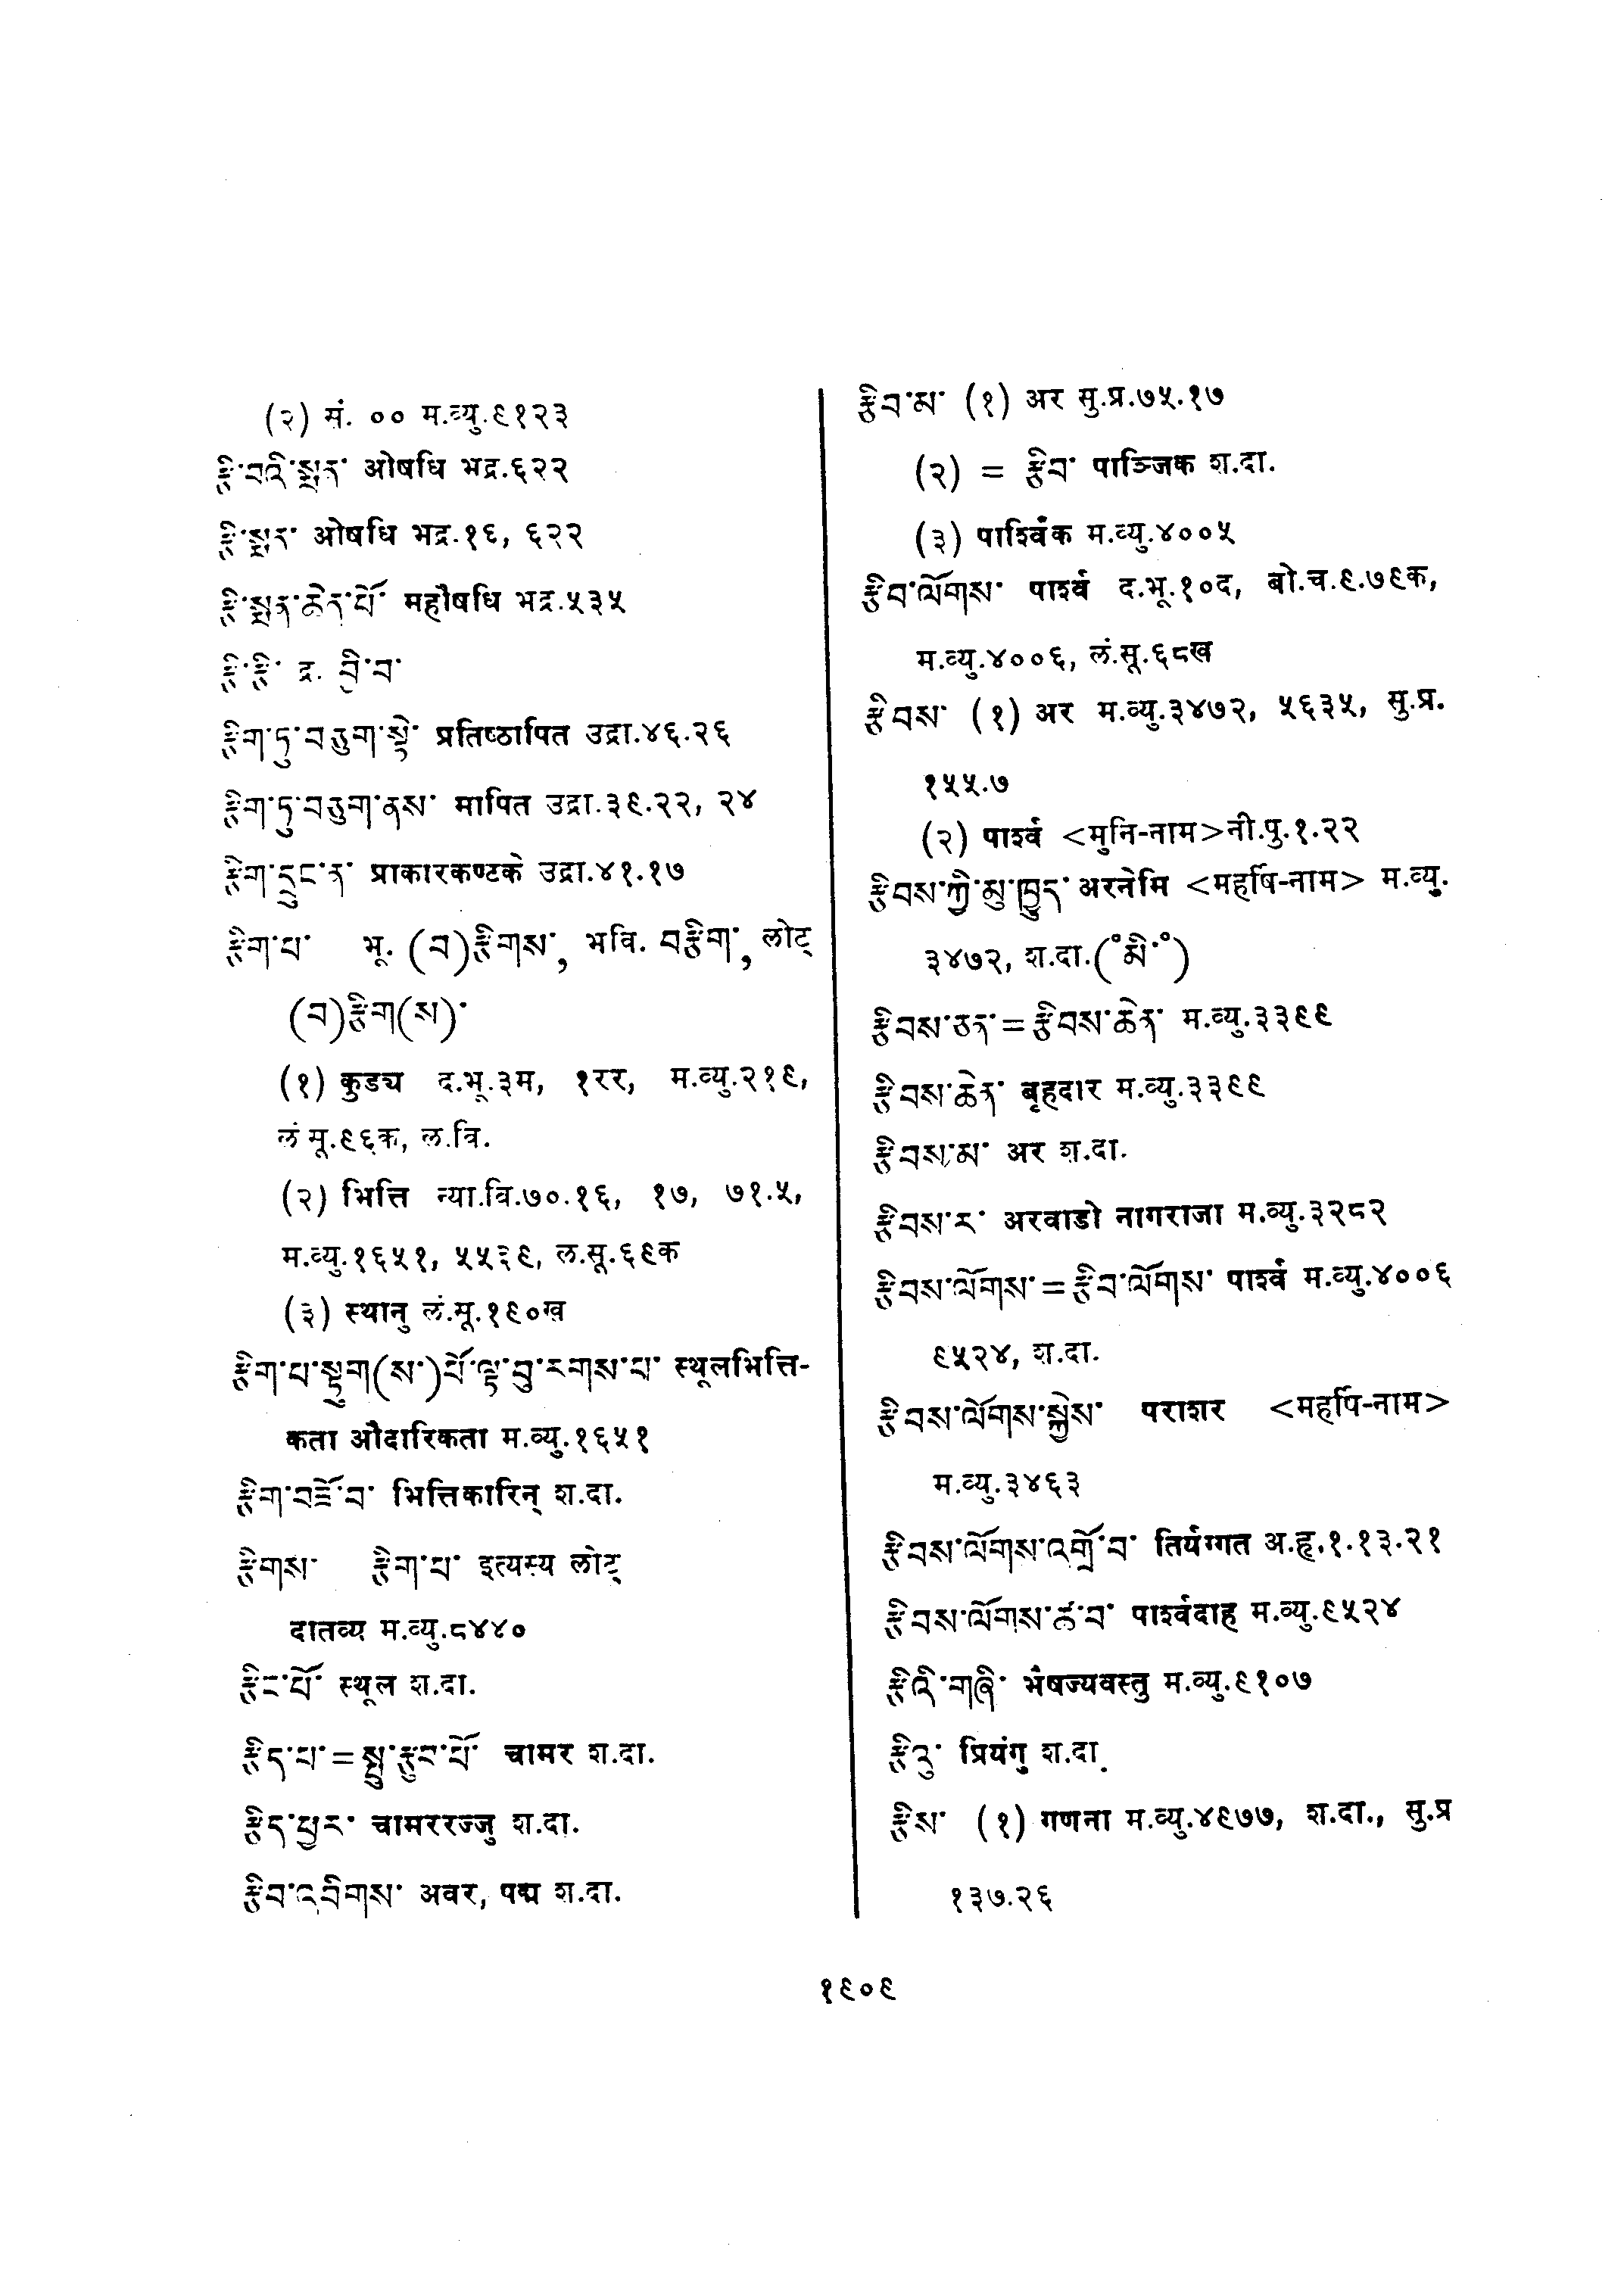 (२) मं. ०० म.व्यु.९१२३
རྩི་བའི་སྨན་ ओषधि भद्र.६२२
རྩི་སྨར་ ओषधि भद्र.१६, ६२२
རྩི་སྨན་ཆེན་པོ་ महौषधि भद्र.५३५
རྩི་རྩི་ द्र. བྱི་བ་
རྩིག་ཏུ་བཅུག་སྟེ་ प्रतिष्ठापित उद्रा.४६.२६
རྩིག་ཏུ་བཅུག་ནས་ मापित उद्रा.३९.२२, २४
རྩིག་དྲུང་ན་ प्राकारकण्टके उद्रा.४१.१७
རྩིག་པ་ भू. (བ)རྩིགས་, भवि. བརྩིག་, लोट्
(བ)རྩིག(ས)་
(१) कुड्य द.भू.३म, १रर, म.व्यु.२१९,
लं सू.९६क, ल.वि.
(२) भित्ति न्या.वि.७०.१६, १७, ७१.५,
म.व्यु.१६५१, ५५३९, ल.सू.६९क
(३) स्थानु लं.सू.१९०ख
རྩིག་པ་སྟུག(ས་)པོ་ལྟ་བུ་རགས་པ་ स्थूलभित्ति-
कता औदारिकता म.व्यु.१६५१
རྩིག་བཟོ་བ་ भित्तिकारिन् श.दा.
རྩིགས་ རྩིག་པ་ इत्यस्य लोट्
दातव्य म.व्यु.८४४०
རྩིང་པོ་ स्थूल श.दा.
རྩིད་པ་=སྤུ་རྩུབ་པོ་ चामर श.दा.
རྩིད་ཕྱར་ चामररज्जु श.दा.
རྩིབ་འབིགས་ अवर, पद्म श.दा.
རྩིབ་མ་ (१) अर सु.प्र.७५.१७
(२) = རྩིབ་ पाञ्जिक श.दा.
(३) पार्श्विक म.व्यु.४००५
རྩིབ་ལོགས་ पार्श्व द.भू.१०द, बो.च.९.७९क,
म.व्यु.४००६, लं.सू.६८ख
རྩིབས་ (१) अर म.व्यु.३४७२, ५६३५, सु.प्र.
१५५.७
(२) पार्श्व <मुनि-नाम>नी.पु.१.२२
རྩིབས་ཀྱི་མུ་ཁྱུད་ अरनेमि <महर्षि-नाम> म.व्यु.
३४७२, श.दा.(°མི་°)
རྩིབས་ཅན་=རྩིབས་ཆེན་ म.व्यु.३३९९
རྩིབས་ཆེན་ बृहदार म.व्यु.३३९९
རྩིབས་མ་ अर श.दा.
རྩིབས་ར་ अरवाडो नागराजा म.व्यु.३२८२
རྩིབས་ལོགས་=རྩིབ་ལོགས་ पार्श्व म.व्यु.४००६
९५२४, श.दा.
རྩིབས་ལོགས་སྐྱེས་ पराशर <महर्षि-नाम>
म.व्यु.३४६३
རྩིབས་ལོགས་འགྲོ་བ་ तिर्यग्गत अ.हृ.१.१३.२१
རྩིབས་ལོགས་ཚ་བ་ पार्श्वदाह म.व्यु.९५२४
རྩིའི་གཞི་ भैषज्यवस्तु म.व्यु.९१०७
རྩིའུ་ प्रियंगु श.दा.
རྩིས་ (१) गणना म.व्यु.४९७७, श.दा., सु.प्र
१३७.२६
१९०९